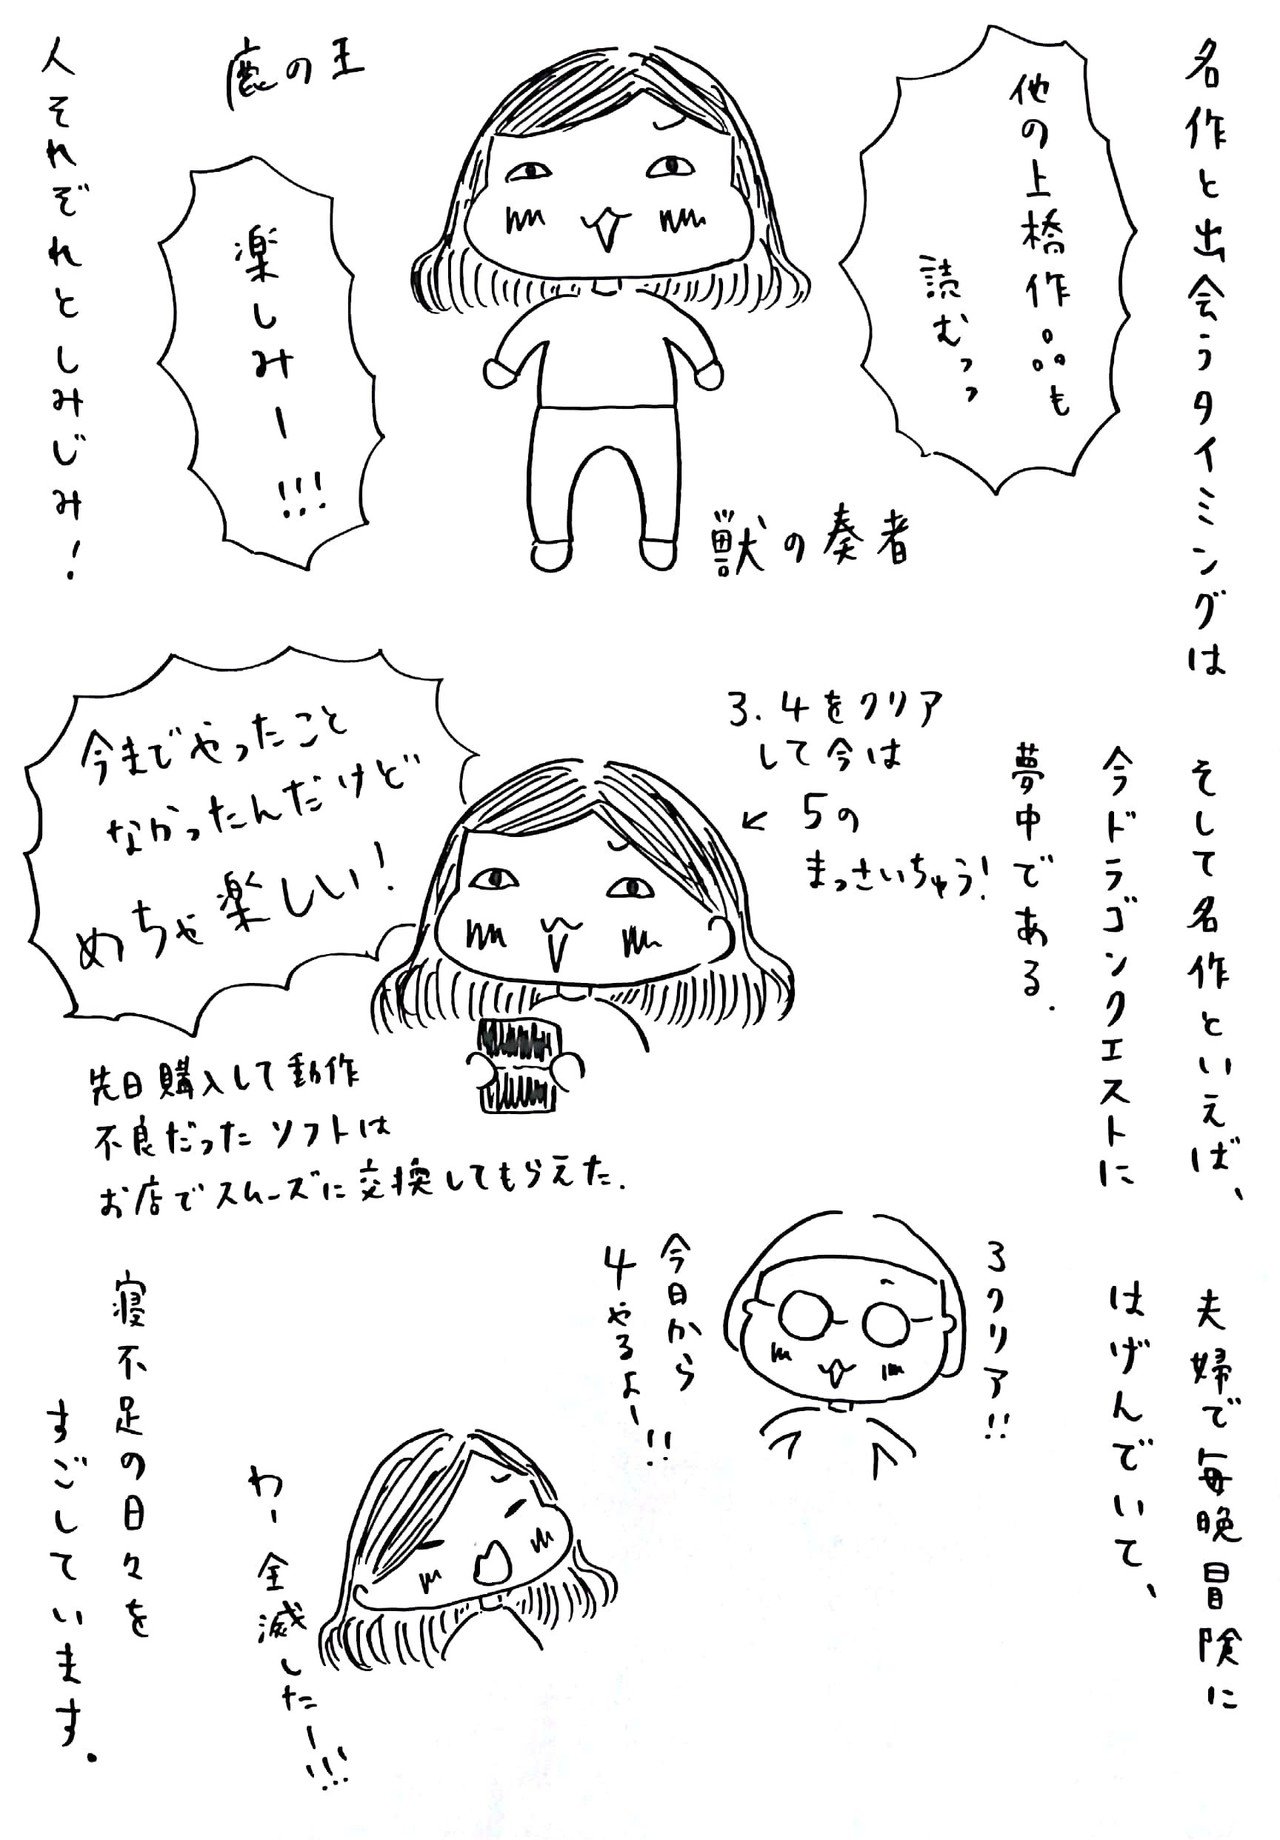 名作と出会うタイミングは
他の上橋作品も
読むっっ
獣の奏者
鹿の王
楽しみー!!!
人それぞれとしみじみ!
そして名作といえば、
今ドラゴンクエストに
夢中である.
3.4をクリア
して今は
5の
まっさいちゅう!
今までやったこと
なかったんだけど
めちゃ楽しい!
先日購入して動作
不良だったソフトは
お店でスムーズに交換してもらえた.
夫婦で毎晩冒険に
はげんでいて、
3クリア!!
今日から
4やるよー!!
わー全滅したー!!!
寝不足の日々を
すごしています.